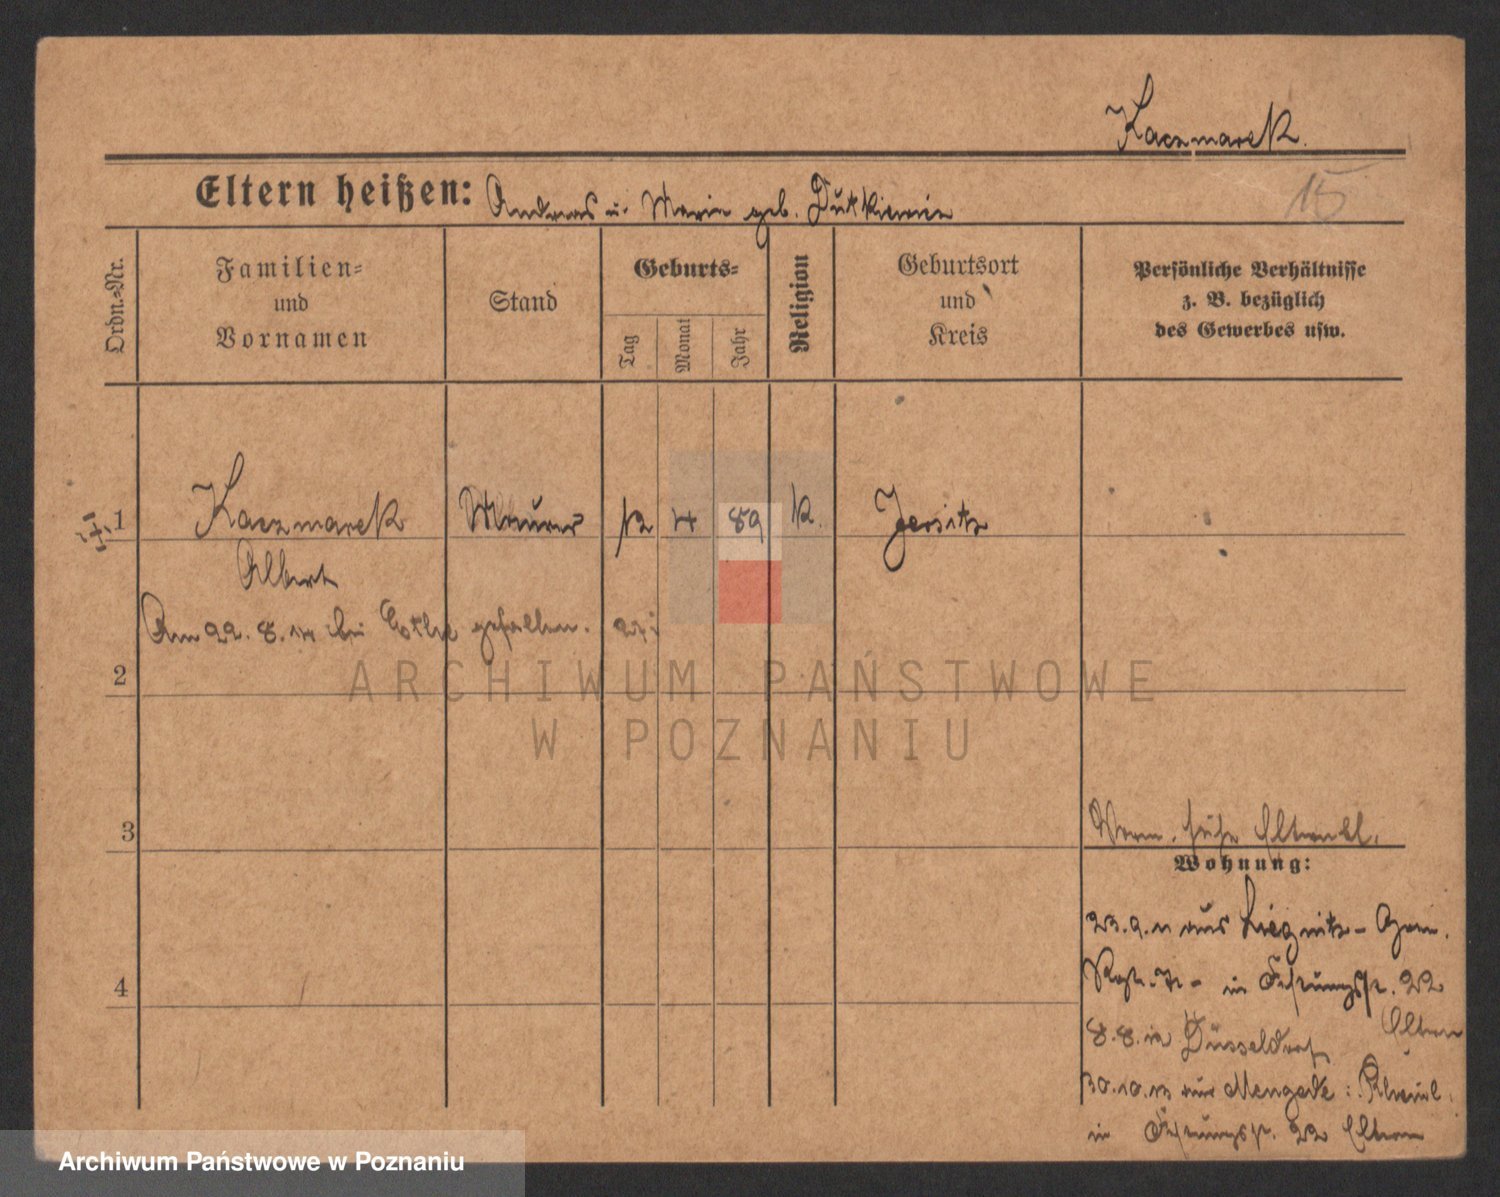 Kaczmarek.
Eltern heißen: Andreas u. Maria geb. Dutkiewicz
15
Ordn.-Nr.
Familien-
und
Vornamen
Stand
Geburts-
Tag
Monat
Jahr
Religion
Geburtsort
und
Kreis
Persönliche Verhältnisse
z. B. bezüglich
des Gewerbes usw.
1 Kaczmarek Maurer 12 4 89 K. Jersitz
Albert
Am 22. 8. 14 bei gefallen.
2
ARCHIWUM PAŃSTWOWE
W POZNANIU
3
Verm. siehe Elternbl.
Wohnung:
23.9.11 aus Liegnitz - Gren.
Regt. 7. - in Festungsstr. 22
Eltern
4
8.8.12 Düsseldorf
30.10.13 aus Mengede : Rheinl.
in Festungsstr. 22 Eltern
Archiwum Państwowe w Poznaniu